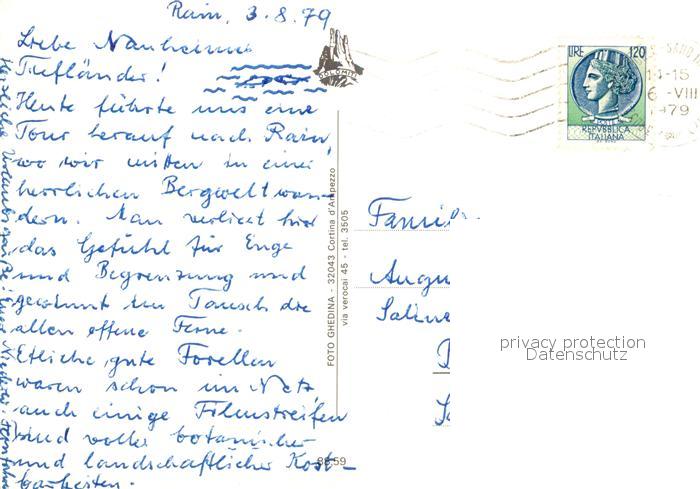 Rain, 3.8.79
Liebe Nauheimer
Tiefländer!
Heute führte uns eine
Tour herauf nach Rain,
wo wir mitten in einer
herrlichen Bergwelt wan-
dern. Man verliert hier
das Gefühl für Enge
und Begrenzung und
gewinnt im Tausch die
allen offene Ferne.
Etliche gute Forellen
waren schon im Netz,
auch einige Filmstreifen
sind voller botanischer
und landschaftlicher Kost-
barkeiten.
Herzliche Urlaubsgrüße! Eure
DOLOMITI
FOTO GHEDINA - 32043 Cortina d'Ampezzo
via verocai 45 - tel. 3505
88.59
LIRE 120
POSTE
REPVBBLICA
ITALIANA
14-15
6-VIII
1979
Fami
Augu
Saline
privacy protection
Datenschutz